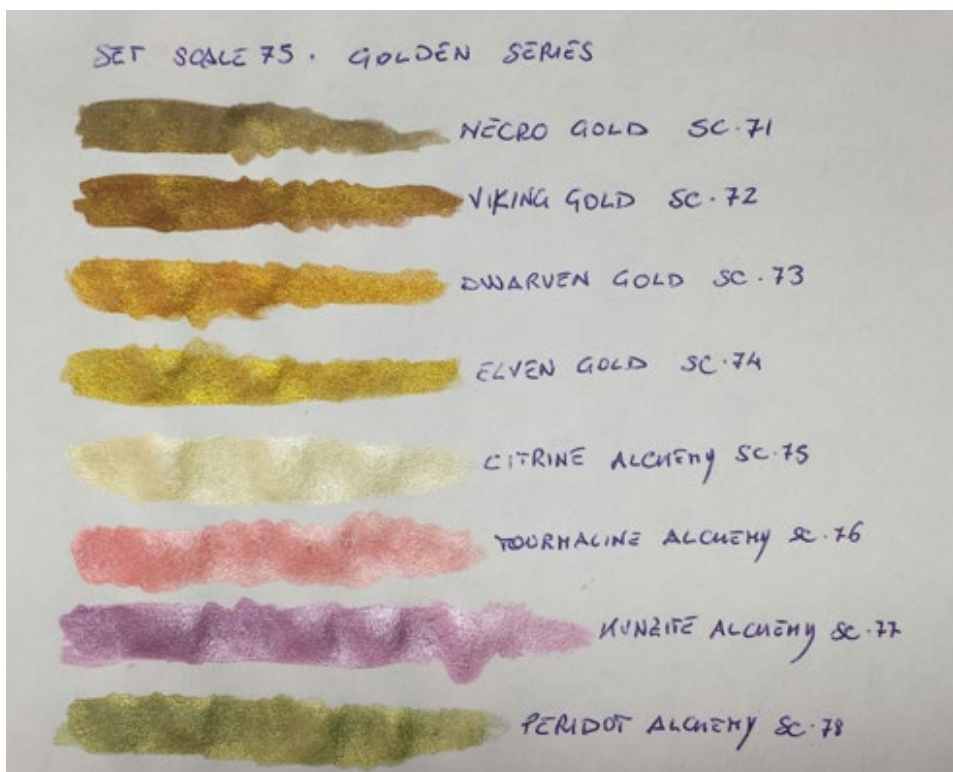 SET SCALE 75. GOLDEN SERIES
NECRO GOLD SC.71
VIKING GOLD SC.72
DWARVEN GOLD SC.73
ELVEN GOLD SC.74
CITRINE ALCHEMY SC.75
TOURMALINE ALCHEMY SC.76
KUNZITE ALCHEMY SC.77
PERIDOT ALCHEMY SC.78